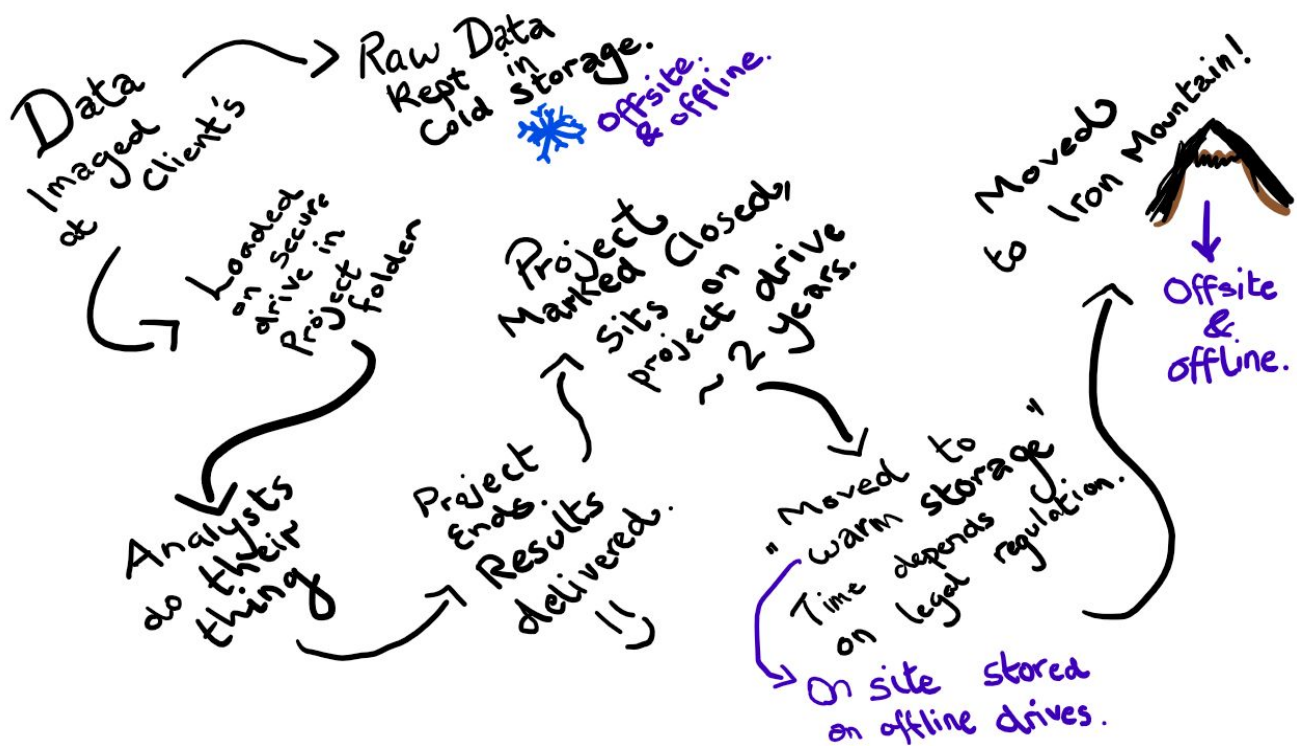 Data
Imaged
at client's
Raw Data
Kept in
Cold Storage.
Offsite.
& offline.
Loaded
on secure
drive in
Project
folder
Analysts
do their
thing
Project
Ends.
Results
delivered.
Project
Marked Closed,
Sits on
project drive
~ 2 years.
"Moved to
warm storage"
Time depends
on legal regulation.
On site stored
on offline drives.
Moved
to Iron Mountain!
Offsite
&
offline.